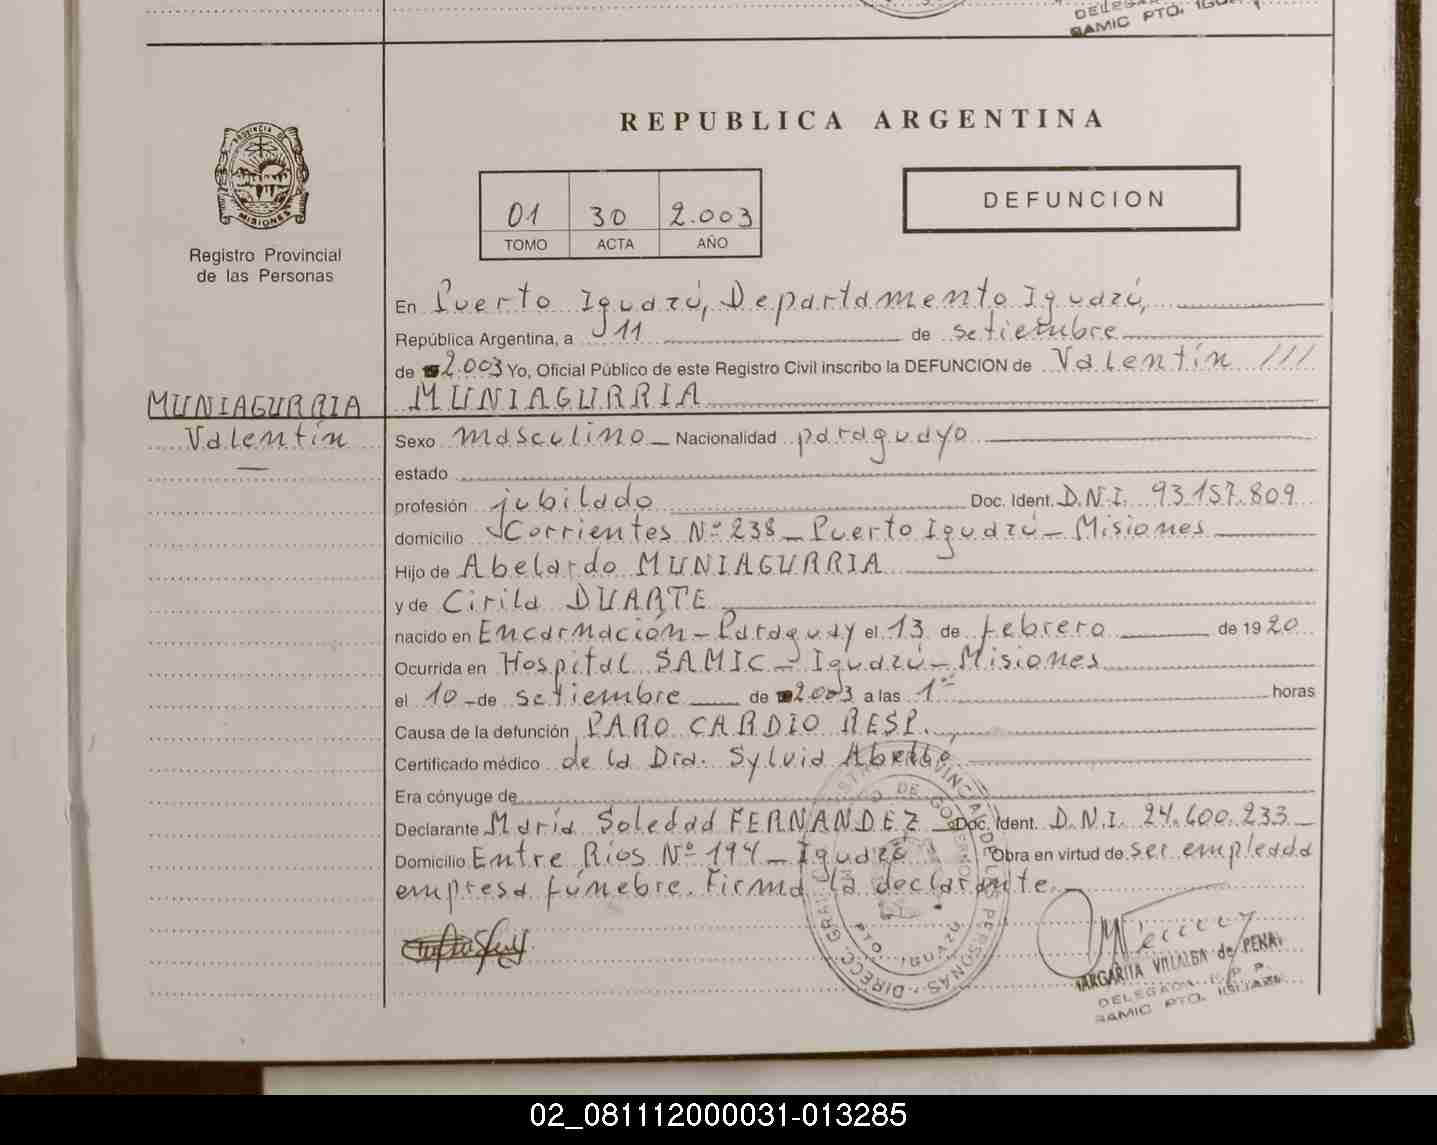 SAMIC PTO. IGU
REPUBLICA ARGENTINA
PROVINCIA DE
MISIONES
Registro Provincial
de las Personas
01 30 2.003
TOMO ACTA AÑO
DEFUNCION
En Puerto Iguazú, Departamento Iguazú,
República Argentina, a 11 de setiembre
de 2.003 Yo, Oficial Público de este Registro Civil inscribo la DEFUNCION de Valentín ///
MUNIAGURRIA
MUNIAGURRIA
Valentín
Sexo masculino Nacionalidad paraguayo
estado
profesión jubilado Doc. Ident. D.N.I. 93.157.809
domicilio Corrientes Nº 238 - Puerto Iguazú - Misiones
Hijo de Abelardo MUNIAGURRIA
y de Cirila DUARTE
nacido en Encarnación - Paraguay el 13 de febrero de 1920
Ocurrida en Hospital SAMIC - Iguazú - Misiones
el 10 de setiembre de 2003 a las 1 horas
Causa de la defunción PARO CARDIO RESP.
Certificado médico de la Dra. Sylvia
Era cónyuge de
Declarante María Soledad FERNANDEZ Doc. Ident. D.N.I. 24.600.233
Domicilio Entre Ríos Nº 194 - Iguazú Obra en virtud de ser empleada
empresa fúnebre. Firma la declarante.
PTO. IGUAZU
MARGARITA VILLALBA de PENA
DELEGADA R. P. P.
SAMIC PTO. IGUAZU
02_081112000031-013285